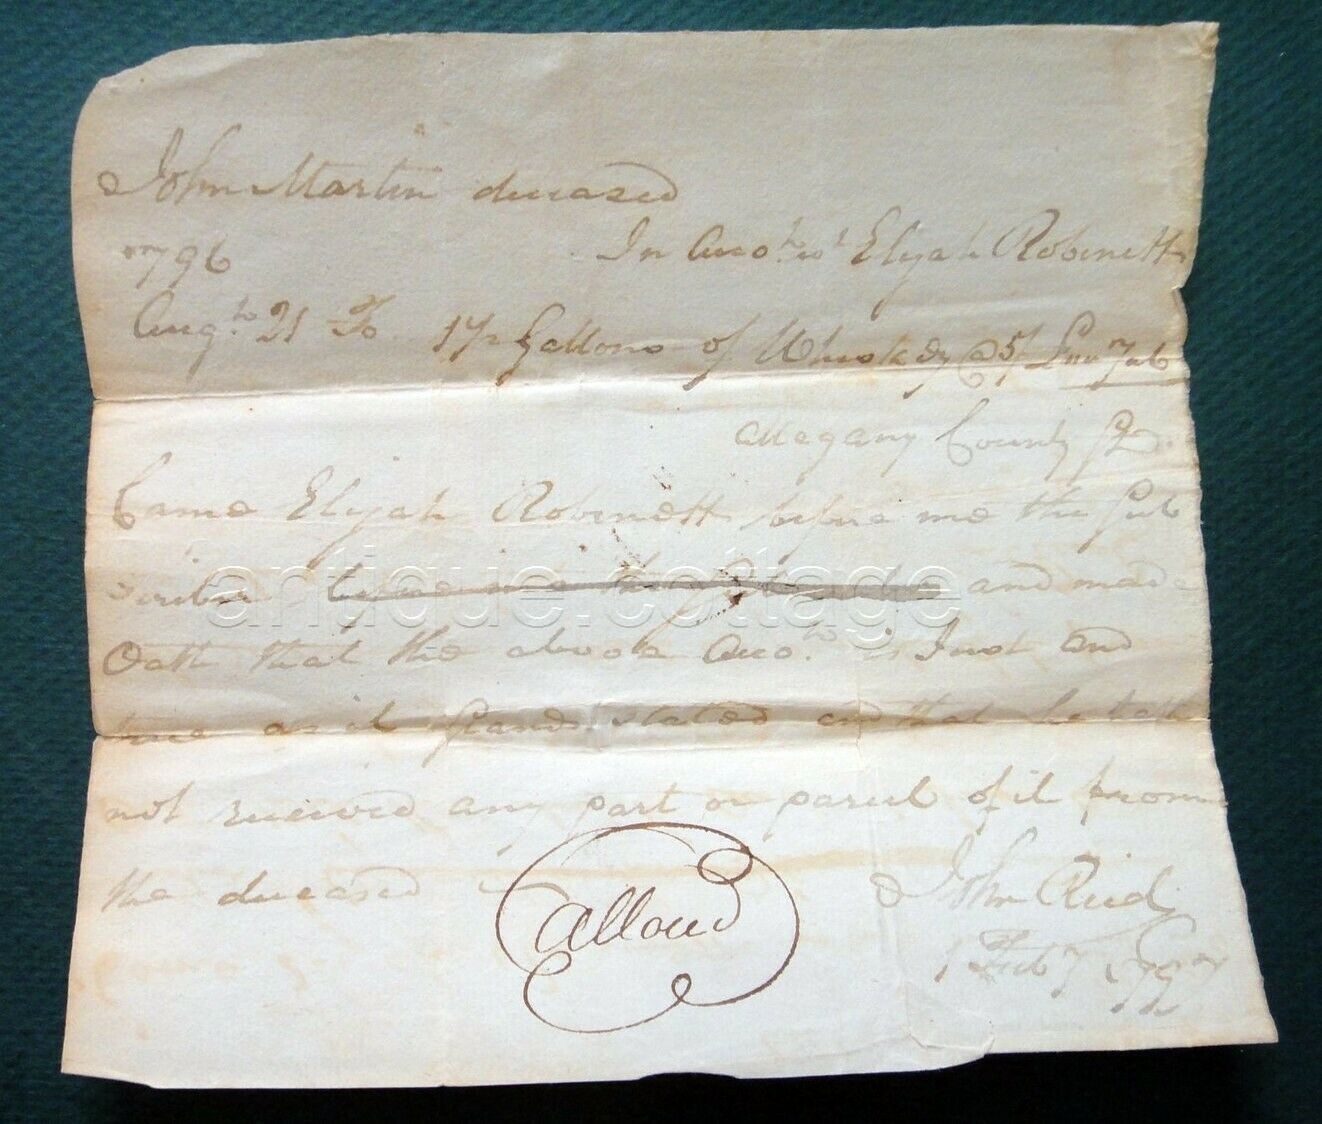 John Martin deceased
1796 In Acco.t w.t Elijah Robinett
Aug.t 21 To 1 1/2 Gallons of Whiskey @ 5/ 7s 6
Allegany County Sc
Came Elijah Robinett before me the Sub
scriber and made
Oath that the above Acco.t is Just and
true as it Stands stated and that he hath
not received any part or parcel of it from
the deceased John Reid
Allowd
Feb 1797
antique.cottage